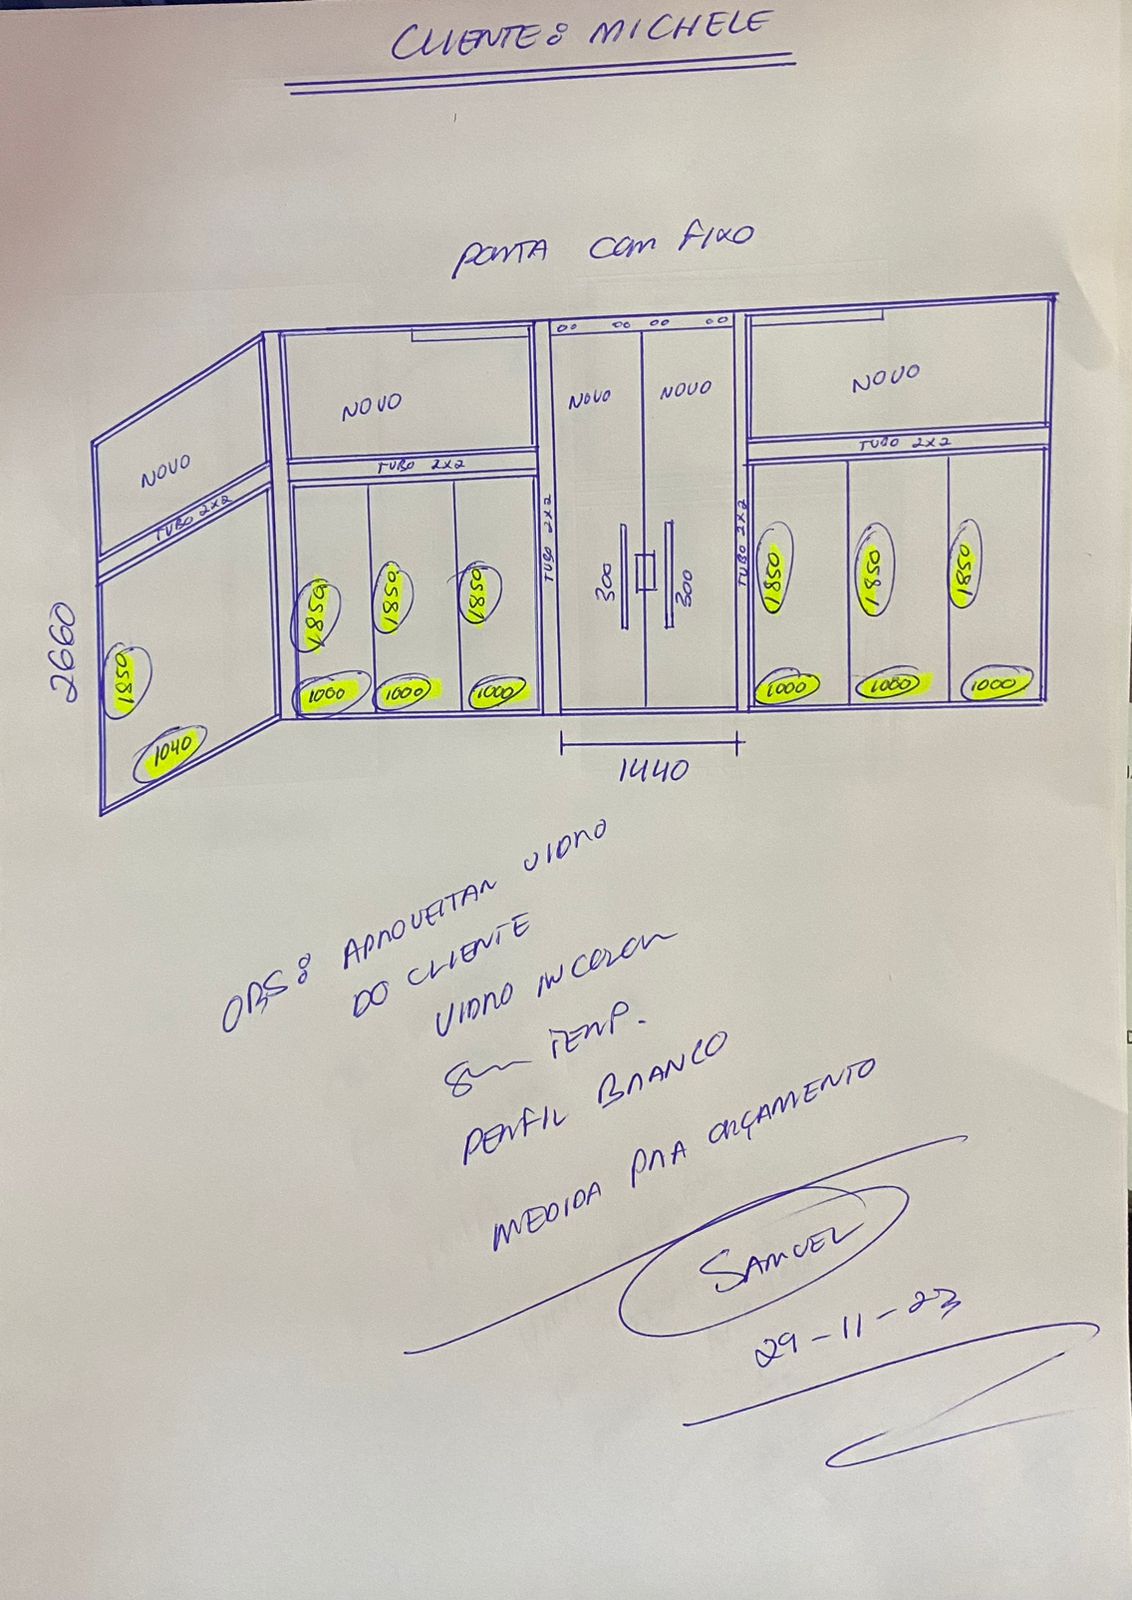 CLIENTE: MICHELE
PORTA COM FIXO
NOVO
NOVO
NOVO
NOVO
NOVO
TUBO 2X2
TUBO 2X2
TUBO 2X2
TUBO 2X2
TUBO 2X2
2660
1850
1850
1850
1850
300
300
1850
1850
1850
1040
1000
1000
1000
1000
1080
1000
1440
OBS: APROVEITAR VIDRO
DO CLIENTE
VIDRO INCOLOR
8mm TEMP.
PERFIL BRANCO
MEDIDA PRA ORÇAMENTO
SAMUEL
29-11-23